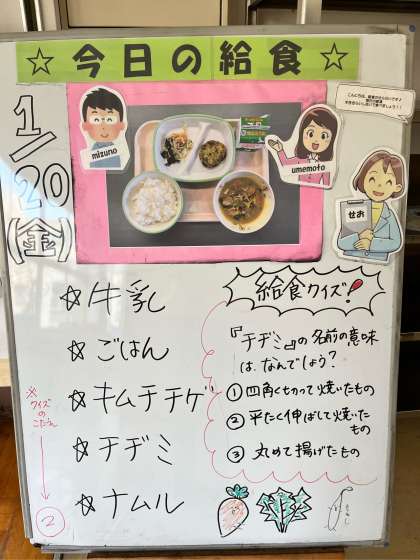 ☆今日の給食☆
1/20(金)
mizuno
umemoto
せお
☆牛乳
☆ごはん
☆キムチチゲ
☆チヂミ
☆ナムル
給食クイズ!
『チヂミ』の名前の意味
は、なんでしょう?
①四角くもって焼いたもの
②平たく伸ばして焼いた
もの
③丸めて揚げたもの
※クイズのこたえ
②